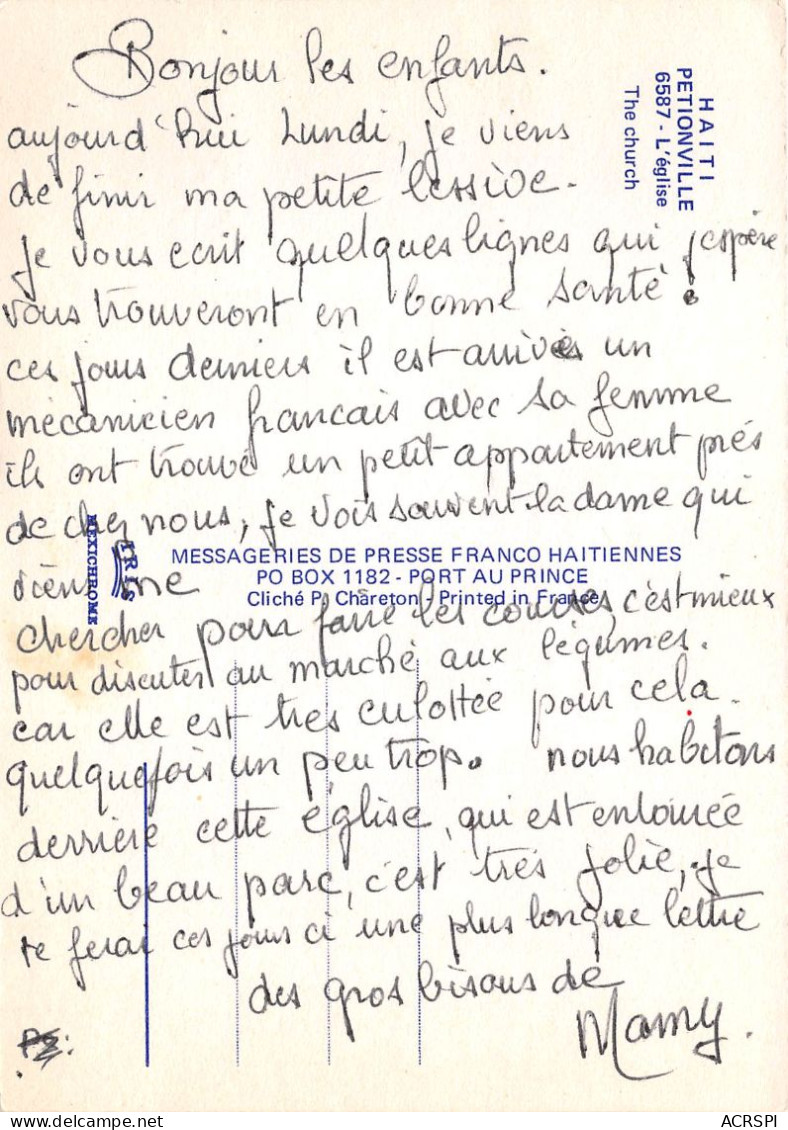 Bonjour les enfants.
aujourd'hui Lundi, je viens
de finir ma petite lessive.
je vous ecrit quelques lignes qui j'espère
vous trouveront en bonne santé.
ces jours derniers il est arrivés un
mécanicien francais avec sa femme
ils ont trouvé un petit appartement prés
de chez nous, je vois souvent la dame qui
viens me
chercher pour faire les courses, c'est mieux
pour discuter au marché aux légumes.
car elle est tres culottée pour cela.
quelquefois un peu trop. nous habitons
derrière cette église, qui est entourée
d'un beau parc, c'est trés jolie, je
te ferai ces jours ci une plus longue lettre
des gros bisous de
Mamy.
HAITI
PETIONVILLE
6587 - L'église
The church
IRIS
MEXICHROME
MESSAGERIES DE PRESSE FRANCO HAITIENNES
PO BOX 1182 - PORT AU PRINCE
Cliché P. Chareton - Printed in France
ACRSPI